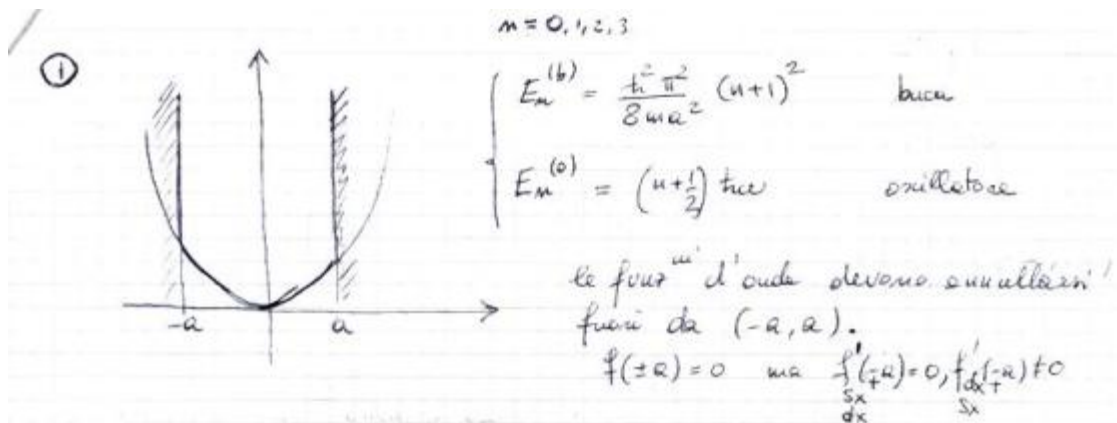 n = 0, 1, 2, 3
①
E_n^(b) = ħ² π² / 8 m a² (n+1)² buca
E_n^(o) = (n + 1/2) ħω oscillatore
-a a
le funz^ni d'onda devono annullarsi
fuori da (-a, a).
f(±a) = 0 ma f'(∓a) = 0, f'(∓a) ≠ 0
sx dx
dx sx